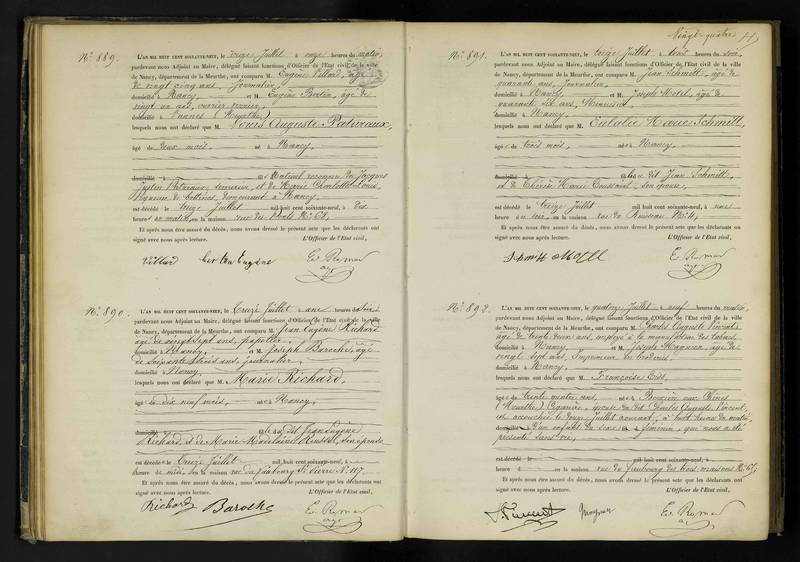 N.° 889.
L'AN MIL HUIT CENT SOIXANTE-NEUF, le treize Juillet à onze heures du matin,
pardevant nous Adjoint au Maire, délégué faisant fonctions d'Officier de l'Etat civil de la ville
de Nancy, département de la Meurthe, ont comparu M. Eugène Villard, âgé
de vingt cinq ans, Journalier,
domicilié à Nancy, et M. Eugène Bertin, âgé de
vingt un ans, ouvrier verrier,
domicilié à Vannes (Meurthe)
lesquels nous ont déclaré que M. Louis Auguste
âgé de deux mois, né à Nancy,
domicilié à fils naturel reconnu de Jacques
Justin et de Marie Charlotte Louis,
de bottines, demeurant à Nancy
est décédé le treize Juillet mil huit cent soixante-neuf, à dix
heures du matin, en la maison rue des N° 68,
Et après nous être assuré du décès, nous avons dressé le présent acte que les déclarants ont
signé avec nous après lecture. L'Officier de l'Etat civil,
Villard Bertin Eugène
N.° 890.
L'AN MIL HUIT CENT SOIXANTE-NEUF, le Treize Juillet à une heures du soir
pardevant nous Adjoint au Maire, délégué faisant fonctions d'Officier de l'Etat civil de la ville
de Nancy, département de la Meurthe, ont comparu M. Jean Eugène Richard
âgé de vingt sept ans, papetier,
domicilié à Nancy, et M. Joseph Baroche, âgé
de soixante trois ans,
domicilié à Nancy,
lesquels nous ont déclaré que M Marie Richard,
âgé de dix neuf mois, née à Nancy,
domicilié à fille du dit Jean Eugène
Richard, et de Marie Madelaine, son épouse
est décédée le Treize Juillet mil huit cent soixante-neuf, à
heure de midi, en la maison rue du faubourg St. Pierre N° 117
Et après nous être assuré du décès, nous avons dressé le présent acte que les déclarants ont
signé avec nous après lecture. L'Officier de l'Etat civil,
Richard Baroche
Vingt-quatre
N.° 891.
L'AN MIL HUIT CENT SOIXANTE-NEUF, le treize Juillet à heures du soir,
pardevant nous Adjoint au Maire, délégué faisant fonctions d'Officier de l'Etat civil de la ville
de Nancy, département de la Meurthe, ont comparu M. Jean Schmitt, âgé de
quarante ans, Journalier,
domicilié à Nancy, et M. Joseph Motel, âgé de
quarante six ans, Menuisier,
domicilié à Nancy,
lesquels nous ont déclaré que M. Eulalie Marie Schmitt,
âgée de trois mois, née à Nancy,
domicilié à fille du dit Jean Schmitt,
et de Thérèse Marie Toussaint, son épouse,
est décédé le treize Juillet mil huit cent soixante-neuf, à une
heure du soir, en la maison rue du Ruisseau N°
Et après nous être assuré du décès, nous avons dressé le présent acte que les déclarants ont
signé avec nous après lecture. L'Officier de l'Etat civil,
Schmitt
N.° 892.
L'AN MIL HUIT CENT SOIXANTE-NEUF, le quatorze Juillet à neuf heures du matin,
pardevant nous Adjoint au Maire, délégué faisant fonctions d'Officier de l'Etat civil de la ville
de Nancy, département de la Meurthe, ont comparu M. Charles Auguste Vincent,
âgé de trente deux ans, employé à la manufacture des tabacs,
domicilié à Nancy, et M. Joseph, âgé de
vingt sept ans, Imprimeur en broderies
domicilié à Nancy,
lesquels nous ont déclaré que M. Françoise
âgé de trente quatre ans, née à
(Meurthe) Cigarière, épouse du dit Charles Auguste Vincent,
est accouchée le treize Juillet courant, à huit heures du matin,
domicilié à d'un enfant du sexe féminin, que nous a été
présenté sans vie,
est décédé le mil huit cent soixante-neuf, à
heure d en la maison rue du faubourg des trois maisons N°
Et après nous être assuré du décès, nous avons dressé le présent acte que les déclarants ont
signé avec nous après lecture. L'Officier de l'Etat civil,
Vincent